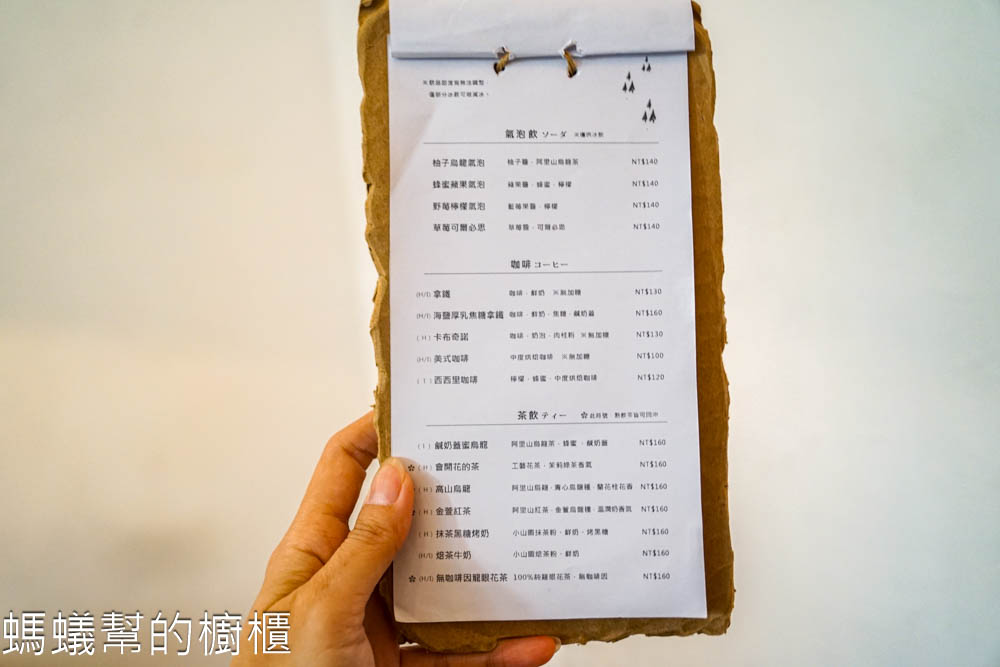 ※飲品甜度皆無法調整，
僅部分冰飲可做減冰。
氣泡飲 ソーダ ※僅供冰飲
柚子烏龍氣泡 柚子醬．阿里山烏龍茶 NT$140
蜂蜜蘋果氣泡 蘋果醬．蜂蜜．檸檬 NT$140
野莓檸檬氣泡 藍莓果醬．檸檬 NT$140
草莓可爾必思 草莓醬．可爾必思 NT$140
咖啡 コーヒー
(H/I) 拿鐵 咖啡．鮮奶 ※無加糖 NT$130
(H/I) 海鹽厚乳焦糖拿鐵 咖啡．鮮奶．焦糖．鹹奶蓋 NT$160
(H) 卡布奇諾 咖啡．奶泡．肉桂粉 ※無加糖 NT$130
(H/I) 美式咖啡 中度烘焙咖啡 ※無加糖 NT$100
(I) 西西里咖啡 檸檬．蜂蜜．中度烘焙咖啡 NT$120
茶飲 ティー ✿此符號 熱飲茶皆可回沖
(I) 鹹奶蓋蜜烏龍 阿里山烏龍茶．蜂蜜．鹹奶蓋 NT$160
✿ (H) 會開花的茶 工藝花茶．茉莉綠茶香氣 NT$160
(H) 高山烏龍 阿里山烏龍．青心烏龍種．蘭花桂花香 NT$160
(H) 金萱紅茶 阿里山紅茶．金萱烏龍種．溫潤奶香氣 NT$160
(H) 抹茶黑糖烤奶 小山園抹茶粉．鮮奶．烤黑糖 NT$160
(H/I) 焙茶牛奶 小山園焙茶粉．鮮奶 NT$160
✿ (H/I) 無咖啡因龍眼花茶 100%純龍眼花茶．無咖啡因 NT$160
螞蟻幫的櫥櫃